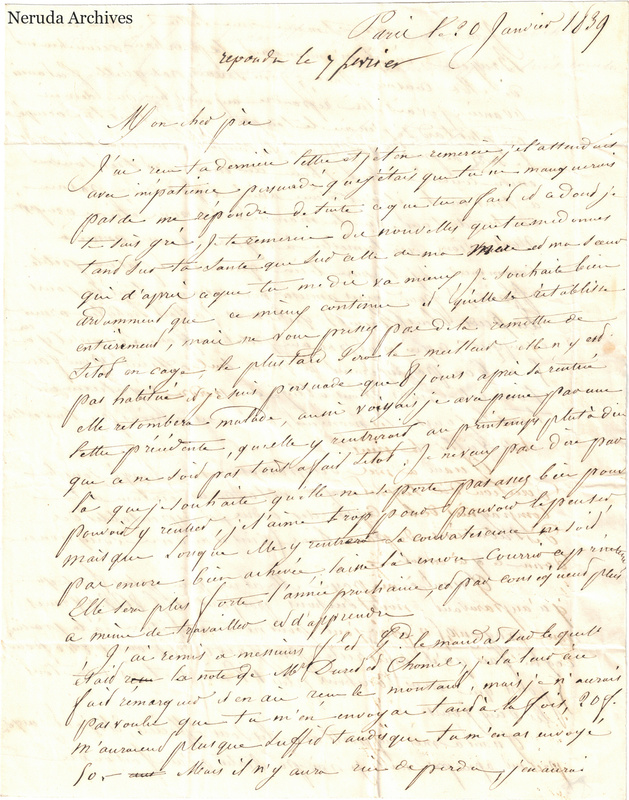 Neruda Archives
Paris le 20 Janvier 1839
repondu le 7 fevrier
Mon cher père
J'ai reçu ta dernière lettre et je t'en remercie, je l'attendais
avec impatience persuadé que j'étais que tu ne manquerais
pas de me répondre de suite ce que tu as fait et ce dont je
te sais gré, Je te remercie des nouvelles que tu me donnes
tant sur ta santé que sur celle de ma mere et ma sœur
qui d'après ce que tu me dis va mieux Je souhaite bien
ardemment que ce mieux continue et qu'elle se rétablisse
entièrement, mais ne vous pressez pas de la remettre de
sitot en cage le plus tard sera le meilleur elle n'y est
pas habitué et je suis persuadé que 8 jours après sa rentrée
elle retombera malade, aussi voyais je avec peine par une
lettre précédente, qu'elle y rentrerait au printemps plut à dieu
que ce ne soit pas tout a fait sitot. Je ne veux pas dire par
là que je souhaite qu'elle ne se porte pas assez bien pour
pouvoir y rentrer, je l'aime trop pour pouvoir le penser
mais que lorsque elle y rentrera sa convalescence ne soit
pas encore bien achevée laisse là encore courrir ce printems
Elle sera plus forte l'année prochaine, et par conséquent plus
a même de travailler et d'apprendre
J'ai remis a messieurs f et le mandat sur lequel
était la note de Mr Duret Chomel, je la leur ai
fait remarquer et en ai reçu le montant, mais je n'aurais
pas voulu que tu m'en envoyas tant à la fois, 20 f.
m'auraient plus que suffit tandis que tu m'en as envoyé
50. Mais il n'y aura rien de perdu, j'en aurai